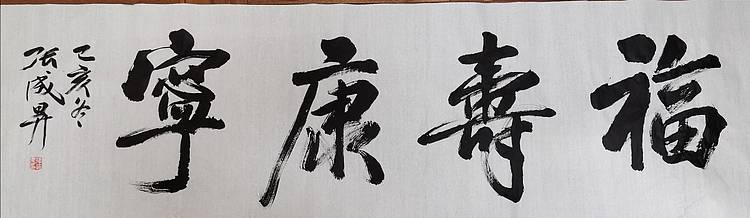 福壽康寧
己亥冬
張成昇